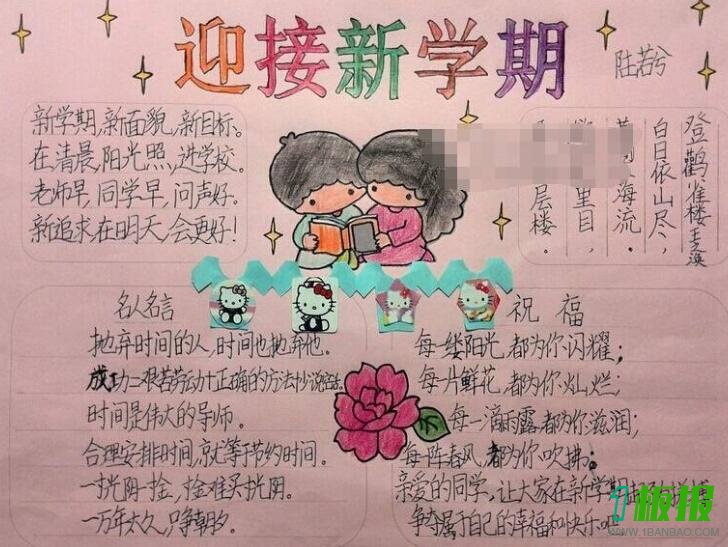 迎接新学期
陆若兮
新学期,新面貌,新目标。
在清晨,阳光照,进学校。
老师早,同学早,问声好。
新追求,在明天,会更好!
登鹳雀楼 王之涣
白日依山尽,
海流。
里目,
层楼。
名人名言
抛弃时间的人,时间也抛弃他。
成功=艰苦劳动+正确的方法+少说空话
时间是伟大的导师。
合理安排时间,就等于节约时间。
一寸光阴一寸金,寸金难买寸光阴。
一万年太久,只争朝夕。
祝福
每一缕阳光,都为你闪耀;
每一片鲜花,都为你灿烂;
每一滴雨露,都为你滋润;
每阵春风,都为你吹拂。
亲爱的同学,让大家在新学期
属于自己的幸福和快乐吧
1板报
WWW.1BANBAO.COM